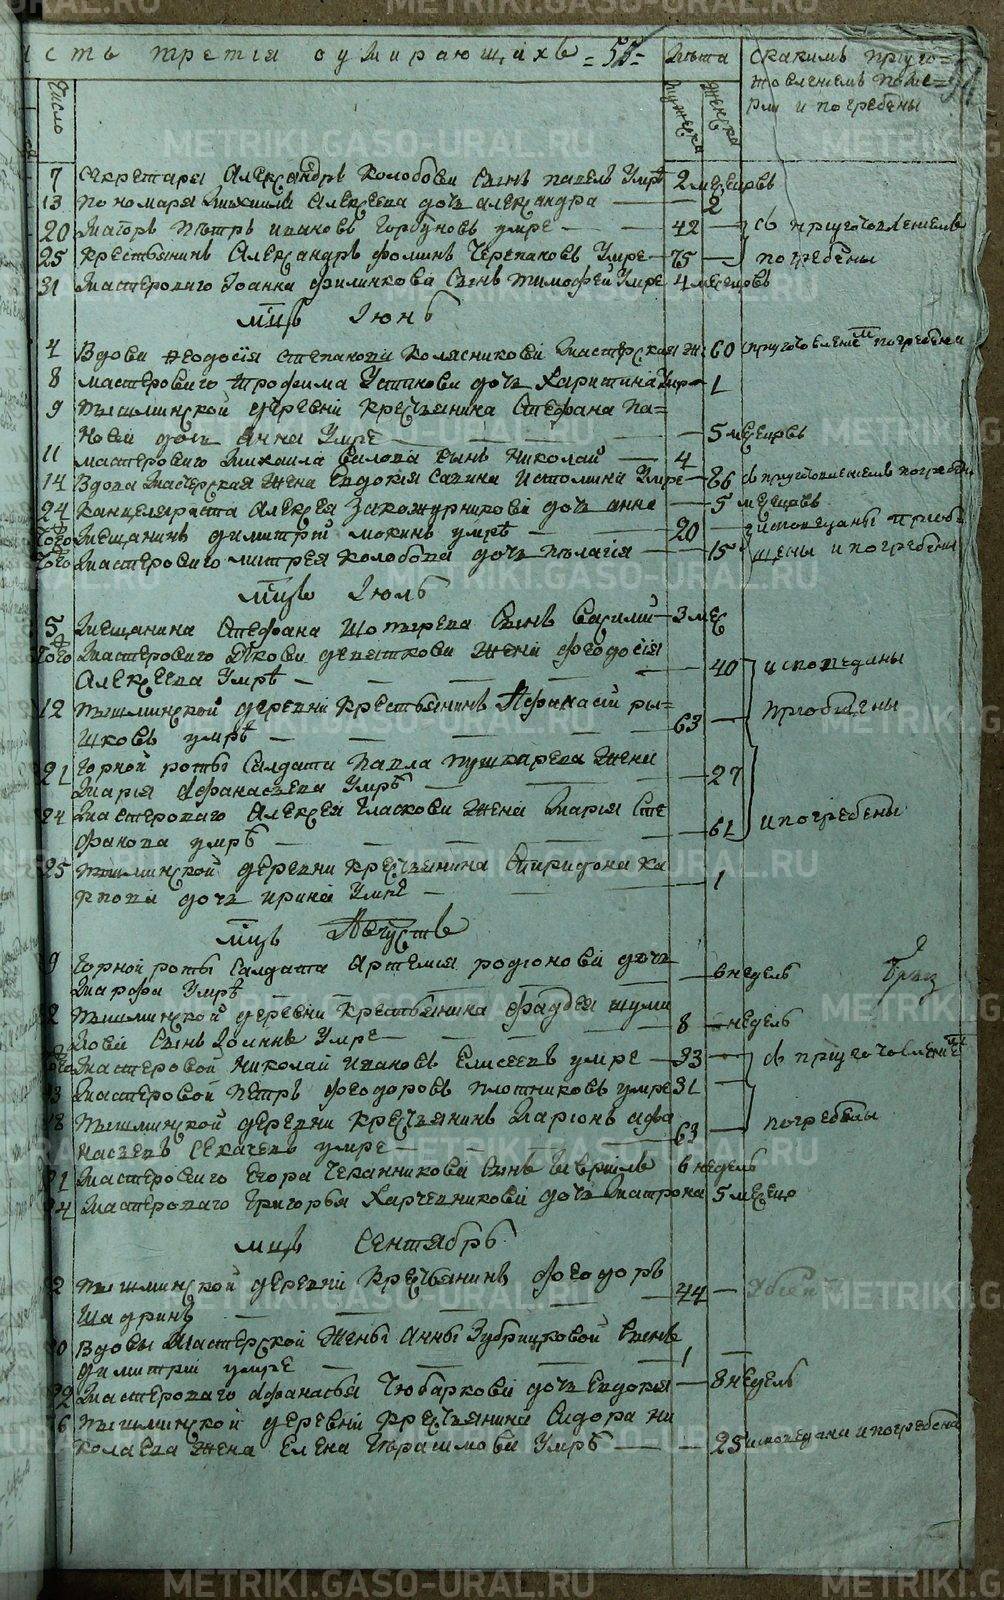 сть третія о умирающихъ = 55 =
Лѣта
Мужеска
Женска
Скакимъ пріуго-
товленіемъ поме-
рли и погребены
Число
7 Секретаря Александръ Колобова Сынъ павелъ Умре 2 месецовъ
13 пономаря Михаила Алексеева дочь александра 2
20 Маіоръ Пѣтръ ивановъ Горбуновъ умре 42 съ пріуготовленіемъ
25 крестьянинъ Александръ фоминъ Черепановъ Умре 75 погребены
31 Мастероваго Іоанна филинкова Сынъ тимофей Умре 4 месецовъ
мцъ Іюнь
4 Вдова Феодосія степанова Колясникова Мастерская ж: 60 спріуготовленіем погребена
8 мастероваго трофима Устинова дочь Харитина Умре 1
9 пышминской деревни крестьянина Стефана па=
нова дочь Анна Умре 5 месецовъ
11 мастероваго Михаила Силова сынъ Николай 4
14 Вдова Мастерская жена Евдокія Савина Истомина Умре 86 съ пріуготовленіемъ погребена
24 канцеляриста Алексея Закожурникова дочь анна 5 месецовъ
Того Мещанинъ димитрій мокинъ умрѣ 20 исповеданы приоб
Того Мастероваго митрея колобова дочь пелагія 15 щены и погребены
мцъ Іюль
5 Мещанина Стефана Шотырева Сынъ Василій 3 мес
Того Мастероваго Якова девяткова жена феодосія
Алексеева Умрѣ 40 исповеданы
12 пышминской деревни крестьянинъ Афанасій ры=
шковъ умрѣ 63 приобщены
21 Горной роты Салдата Павла пушкарева жена
Марія Афанасьева Умрѣ 27
24 Мастероваго Алексея Гласкова жена Марія Сте
фанова умрѣ 61 и погребены
25 пышминской деревни крестьянина Спиридона ка
рпова дочь ирина Умрѣ 1
мцъ Августъ
9 Горной роты Салдата Артемія родіонова дочь
Марфа Умрѣ 6 недель
пышминской деревни крестьянина фадѣя шуми
лова Сынъ Іоаннъ Умре 8 недель
Того Мастеровой Николай Ивановъ Елисеевъ умре 33 съ пріуготовленіе
Мастеровой Петръ феодоровъ плотниковъ умре 31
пышминской деревни крестьянинъ Ларіонъ афа
насьевъ Секачевъ умре 63 погребены
Мастероваго Егора Чеканникова Сынъ Гавріилъ 6 недель
Мастероваго Григорья Харчевникова дочь Матрона 5 месец
мцъ Сентябрь
пышминской деревни крестьянинъ Феодоръ
Шадринъ 44 Убіен
Вдовы Мастерской жены Анны Зубрицковой Сынъ
Димитрій умре 1
Мастероваго Афанасья Чюбаркова дочь Евдокія 8 недель
пышминской деревни крестьянина Сидора ни
колаева жена Елена Герасимова Умрѣ 25 исповедана и погребена